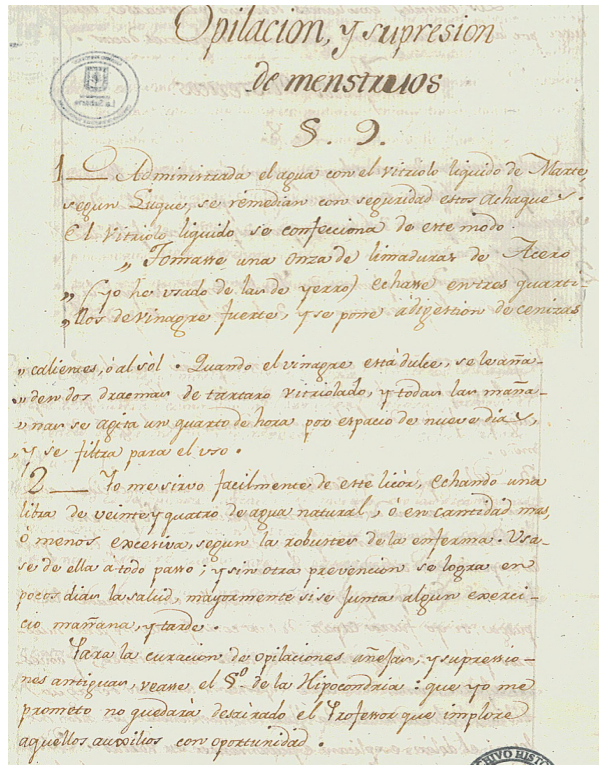 Opilacion, y supresion
de menstruos
§. 9.
1 — Administrada el agua con el vitriolo liquido de Marte,
segun Luque, se remedian con seguridad estos achaques.
El vitriolo liquido se confecciona de este modo.
„ Tomasse una onza de limaduras de Acero
„ (yo he vsado de las de yerro) echasse en tres quarti-
„ llos de vinagre fuerte, y se pone a digestion de cenizas
„ calientes, ó al sòl. Quando el vinagre està dulce, se le aña-
„ den dos dracmas de tartaro vitriolado, y todas las maña-
„ nas se agita un quarto de hora por espacio de nueve dias,
„ y se filtra para el vso.
2 — Yo me sirvo facilmente de este licòr, echando una
libra de veinte y quatro de agua natural, ò en cantidad mas,
ò menos excesiva, segun la robustez de la enferma. Vsa-
se de ella à todo pasto; y sin otra prevencion se logra en
pocos dias la salud, mayormente si se junta algun exerci-
cio mañana, y tarde.
Para la curacion de opilaciones añejas, y supressio-
nes antiguas, veasse el §.º de la Hipocondria: que yo me
prometo no quedarà desairado el Professor que implore
aquellos auxilios con oportunidad.